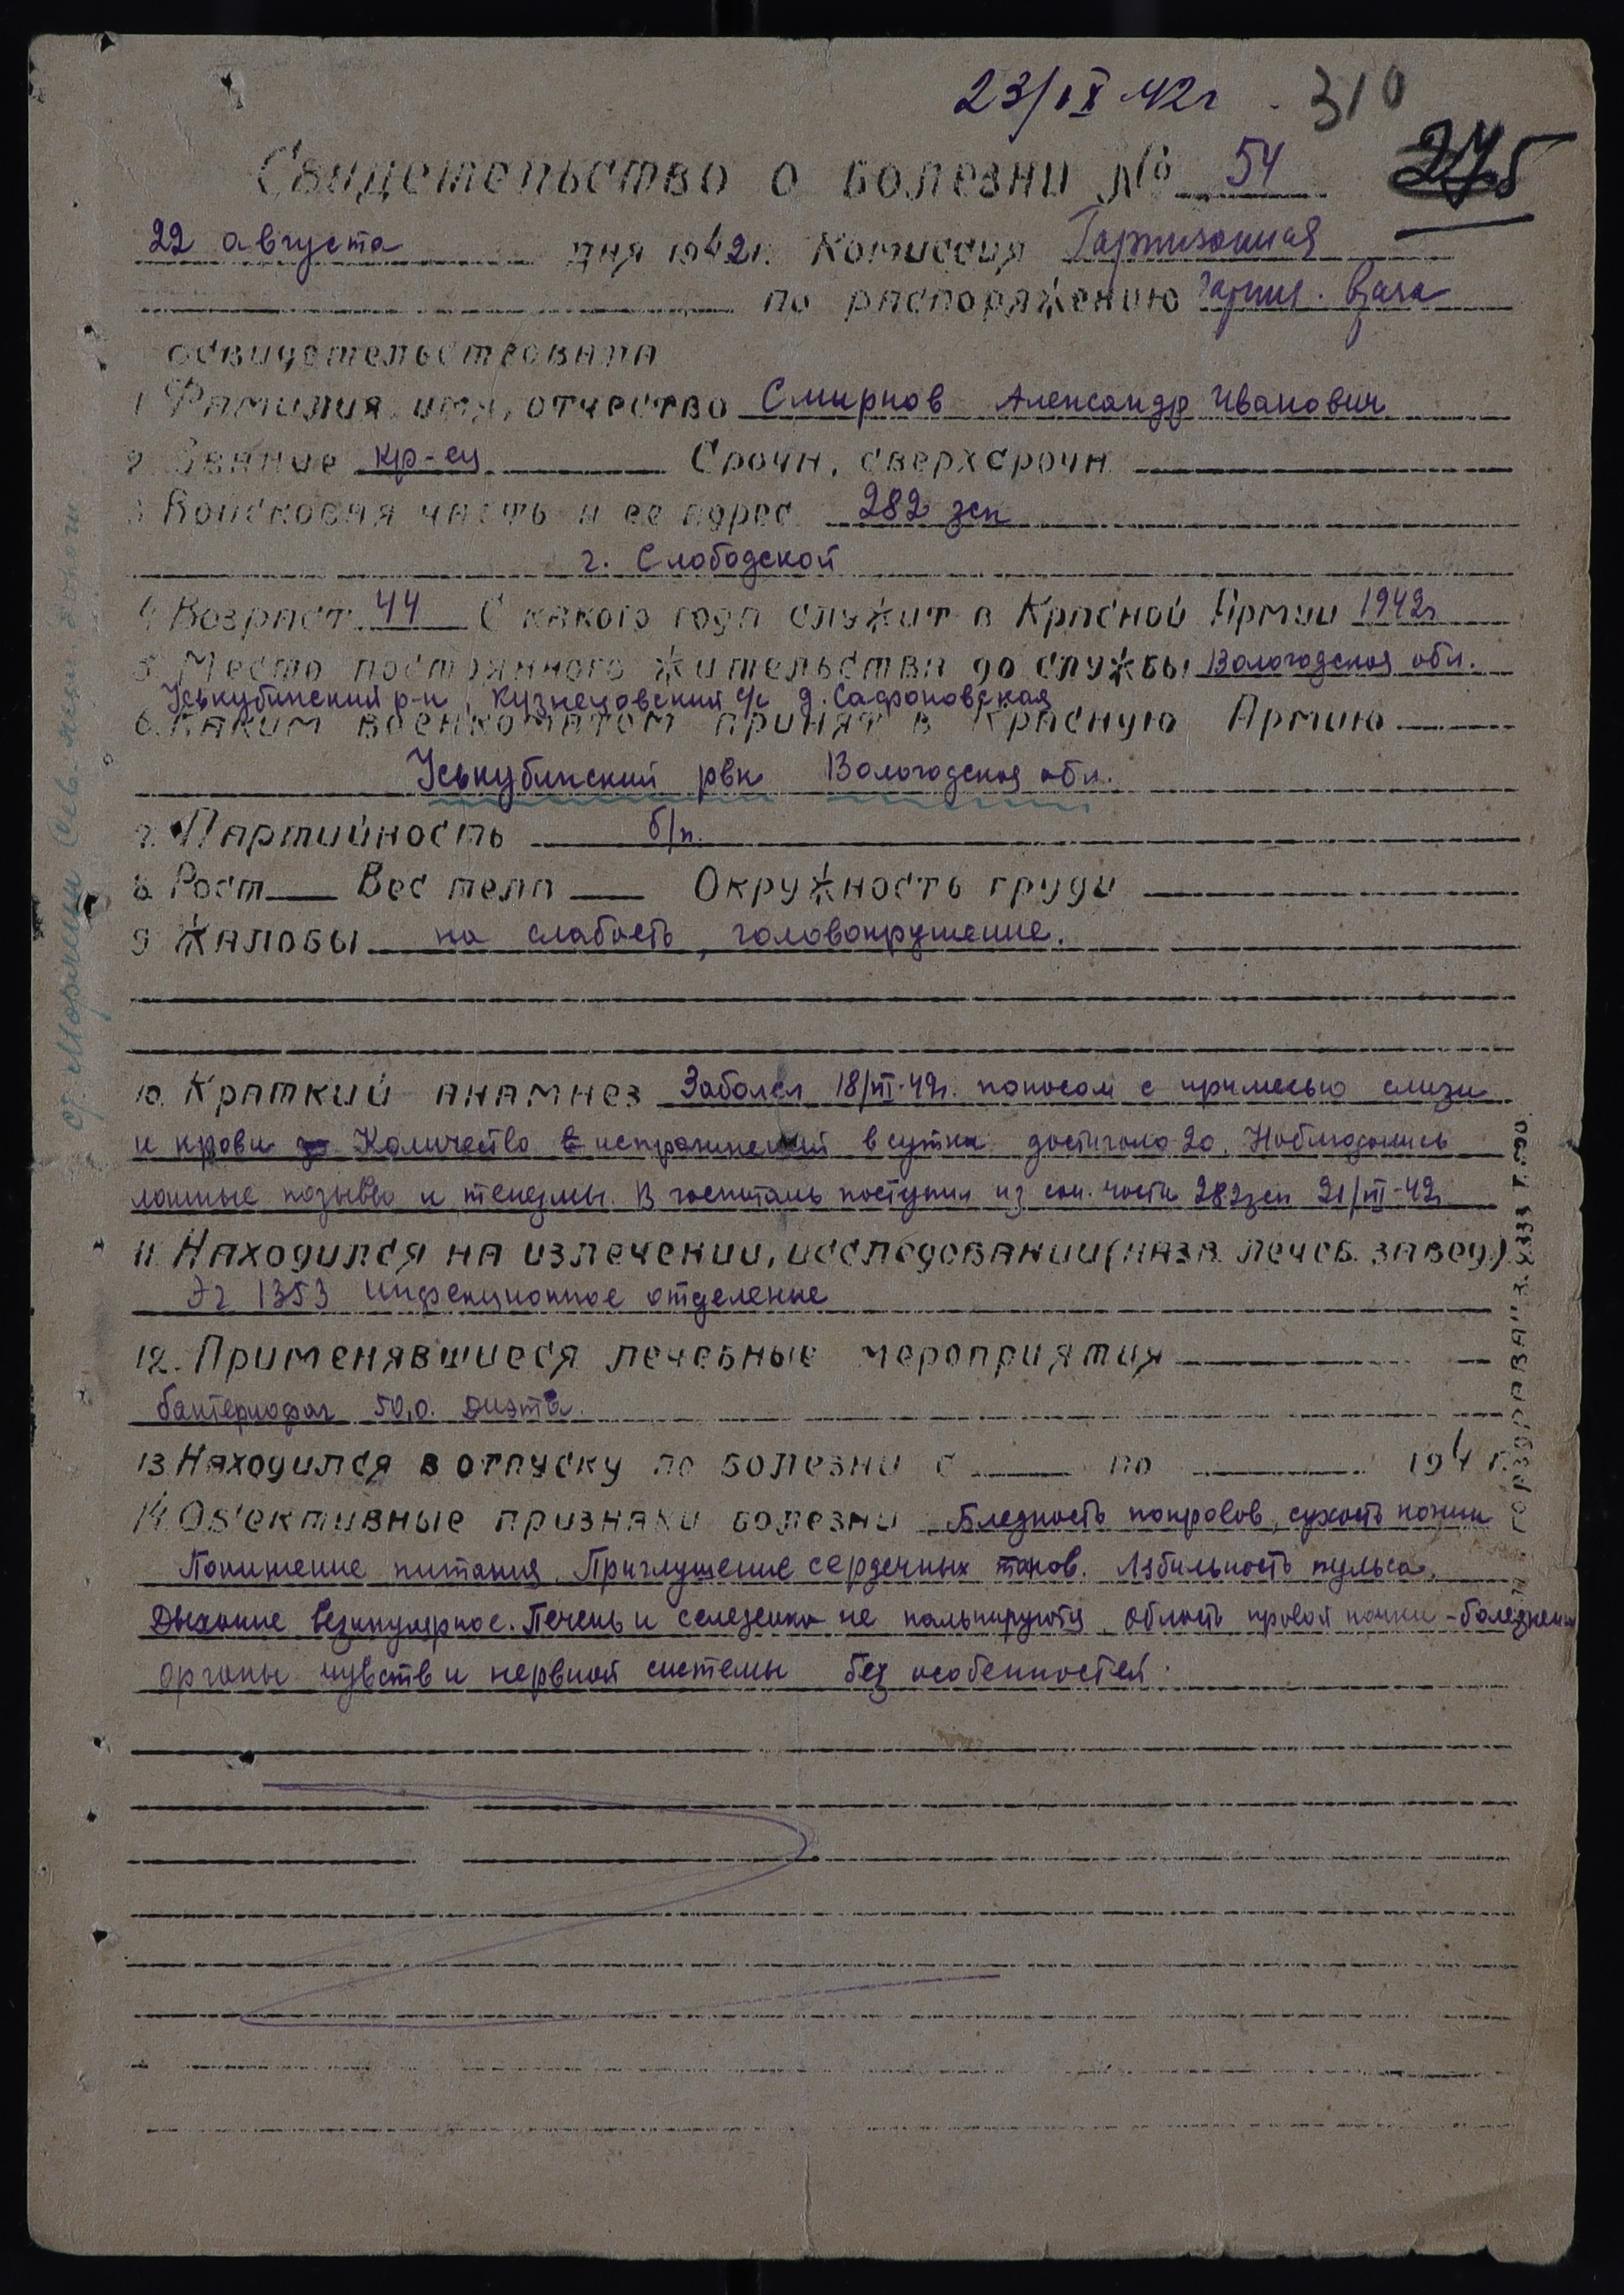 23/IX 42г. 310
Свидетельство о болезни № 54 275
22 августа дня 1942г. Комиссия Гарнизонная
по распоряжению гарниз. врача
освидетельствовала
1 Фамилия, имя, отчество Смирнов Александр Иванович
2 Звание кр-ец Срочн. сверхсрочн.
3 Войсковая часть и ее адрес 282 зсп
г. Слободской
4 Возраст 44 С какого года служит в Красной Армии 1942г
5. Место постоянного жительства до службы Вологодская обл.
Уськубинский р-н, Кузнецовский с/с д. Сафроновская
6. Каким военкоматом принят в Красную Армию
Уськубинский рвк Вологодская обл.
7. Партийность б/п.
8. Рост Вес тела Окружность груди
9 Жалобы на слабость, головокружение.
10. Краткий анамнез Заболел 18/VII-42г. поносом с примесью слизи
и крови Количество испражнений в сутки достигало 20. Наблюдались
ложные позывы и тенезмы. В госпиталь поступил из сан. части 282зсп 21/VII-42г
11. Находился на излечении, исследовании (назв. лечеб. завед.)
Эг 1353 инфекционное отделение
12. Применявшиеся лечебные мероприятия
бактериофаг 50,0. диэта.
13 Находился в отпуску по болезни с по 194 г.
14. Об'ективные признаки болезни Бледность покровов, сухость кожи
Понижение питания. Приглушение сердечных тонов. Лабильность пульса.
Дыхание везикулярное. Печень и селезенка не пальпируются, область правой почки - болезнен
Органы чувств и нервной системы без особенностей.